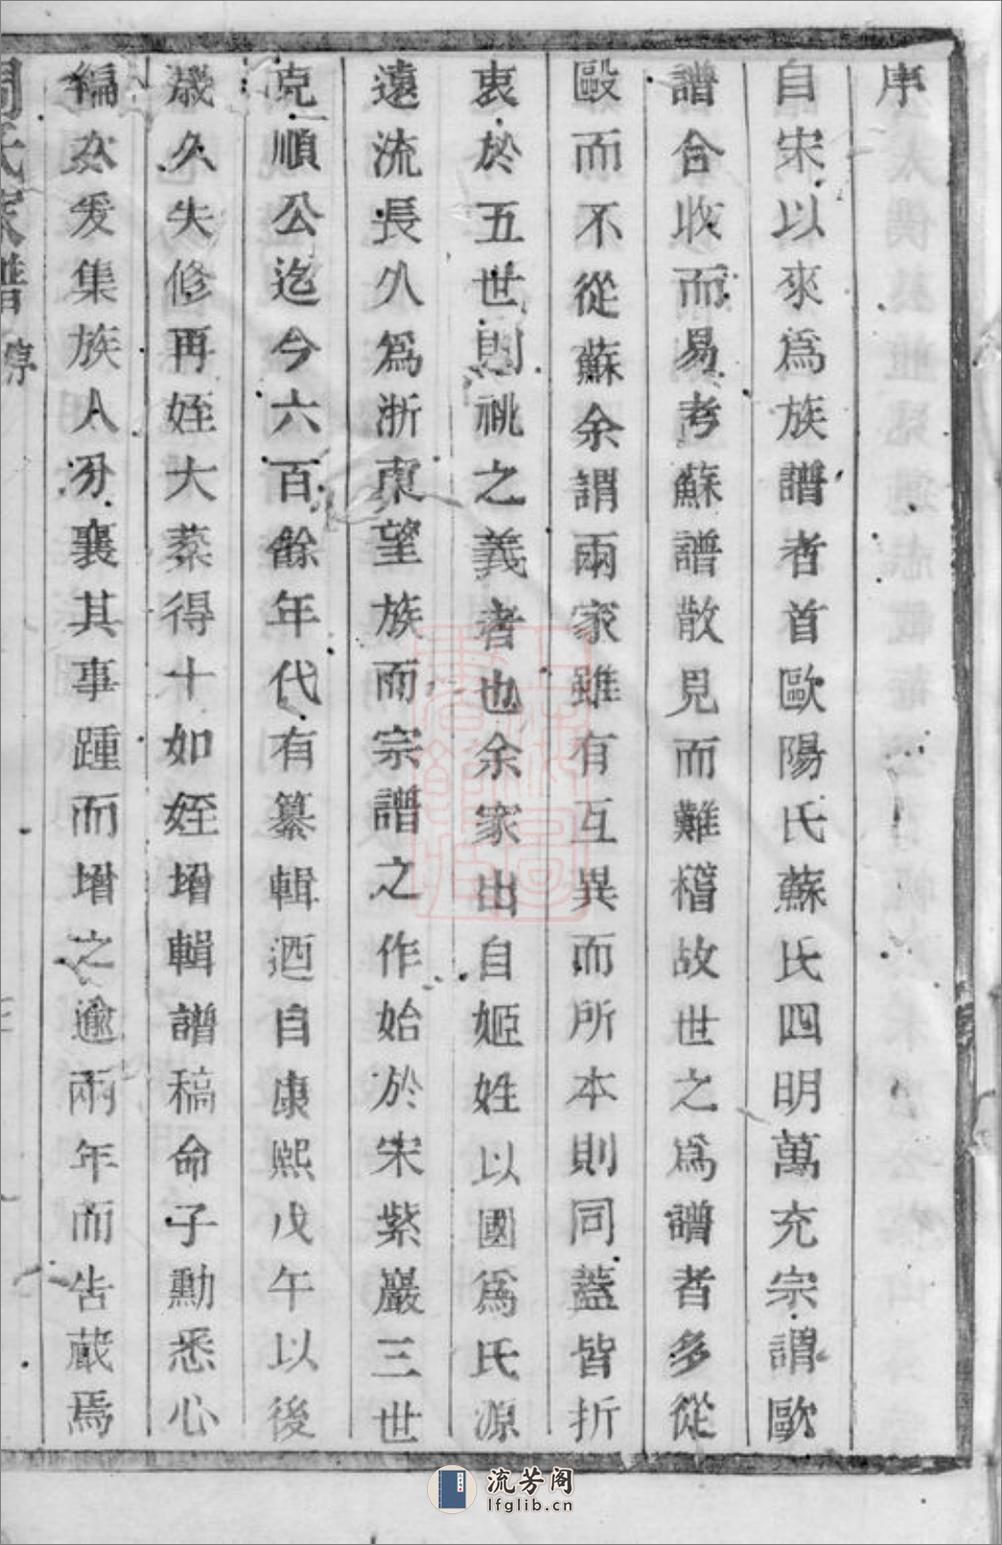 序
自宋以來爲族譜者首歐陽氏蘇氏四明萬充宗謂歐
譜合收而易考蘇譜散見而難稽故世之爲譜者多從
歐而不從蘇余謂兩家雖有互異而所本則同蓋皆折
衷於五世則祧之義者也余家出自姬姓以國爲氏源
遠流長久爲浙東望族而宗譜之作始於宋紫巖三世
克順公迄今六百餘年代有纂輯迺自康熙戊午以後
歲久失修再姪大蓁得十如姪增輯譜稿命子勳悉心
編次爰集族人分襄其事踵而增之逾兩年而告蕆焉
周氏家譜 序
流芳阁
lfglib.cn